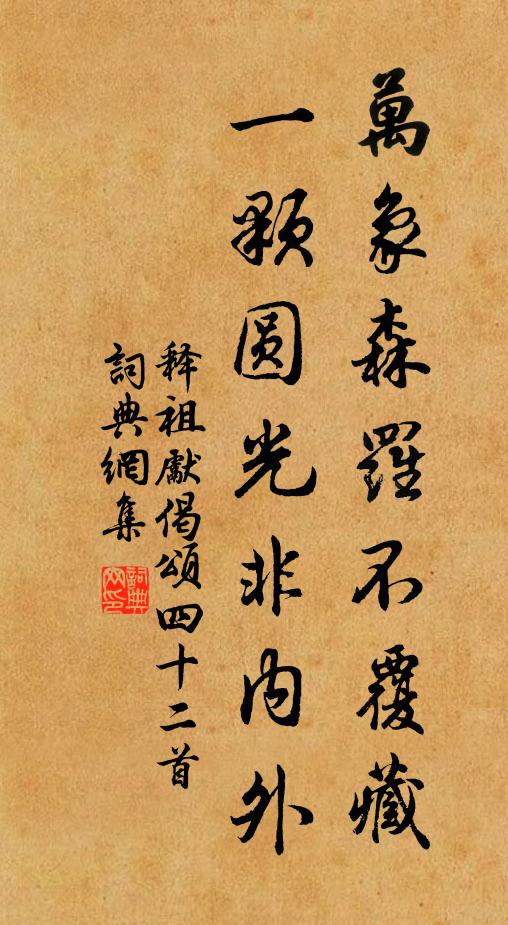 萬象森羅不覆藏
一顆圓光非内外
释祖獻偈頌四十二首
詞典網集
詞典网印